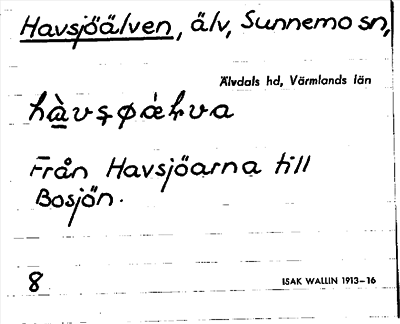 Havsjöälven, älv, Sunnemo sn,
Älvdals hd, Värmlands län
Från Havsjöarna till
Bosjön.
8
ISAK WALLIN 1913–16